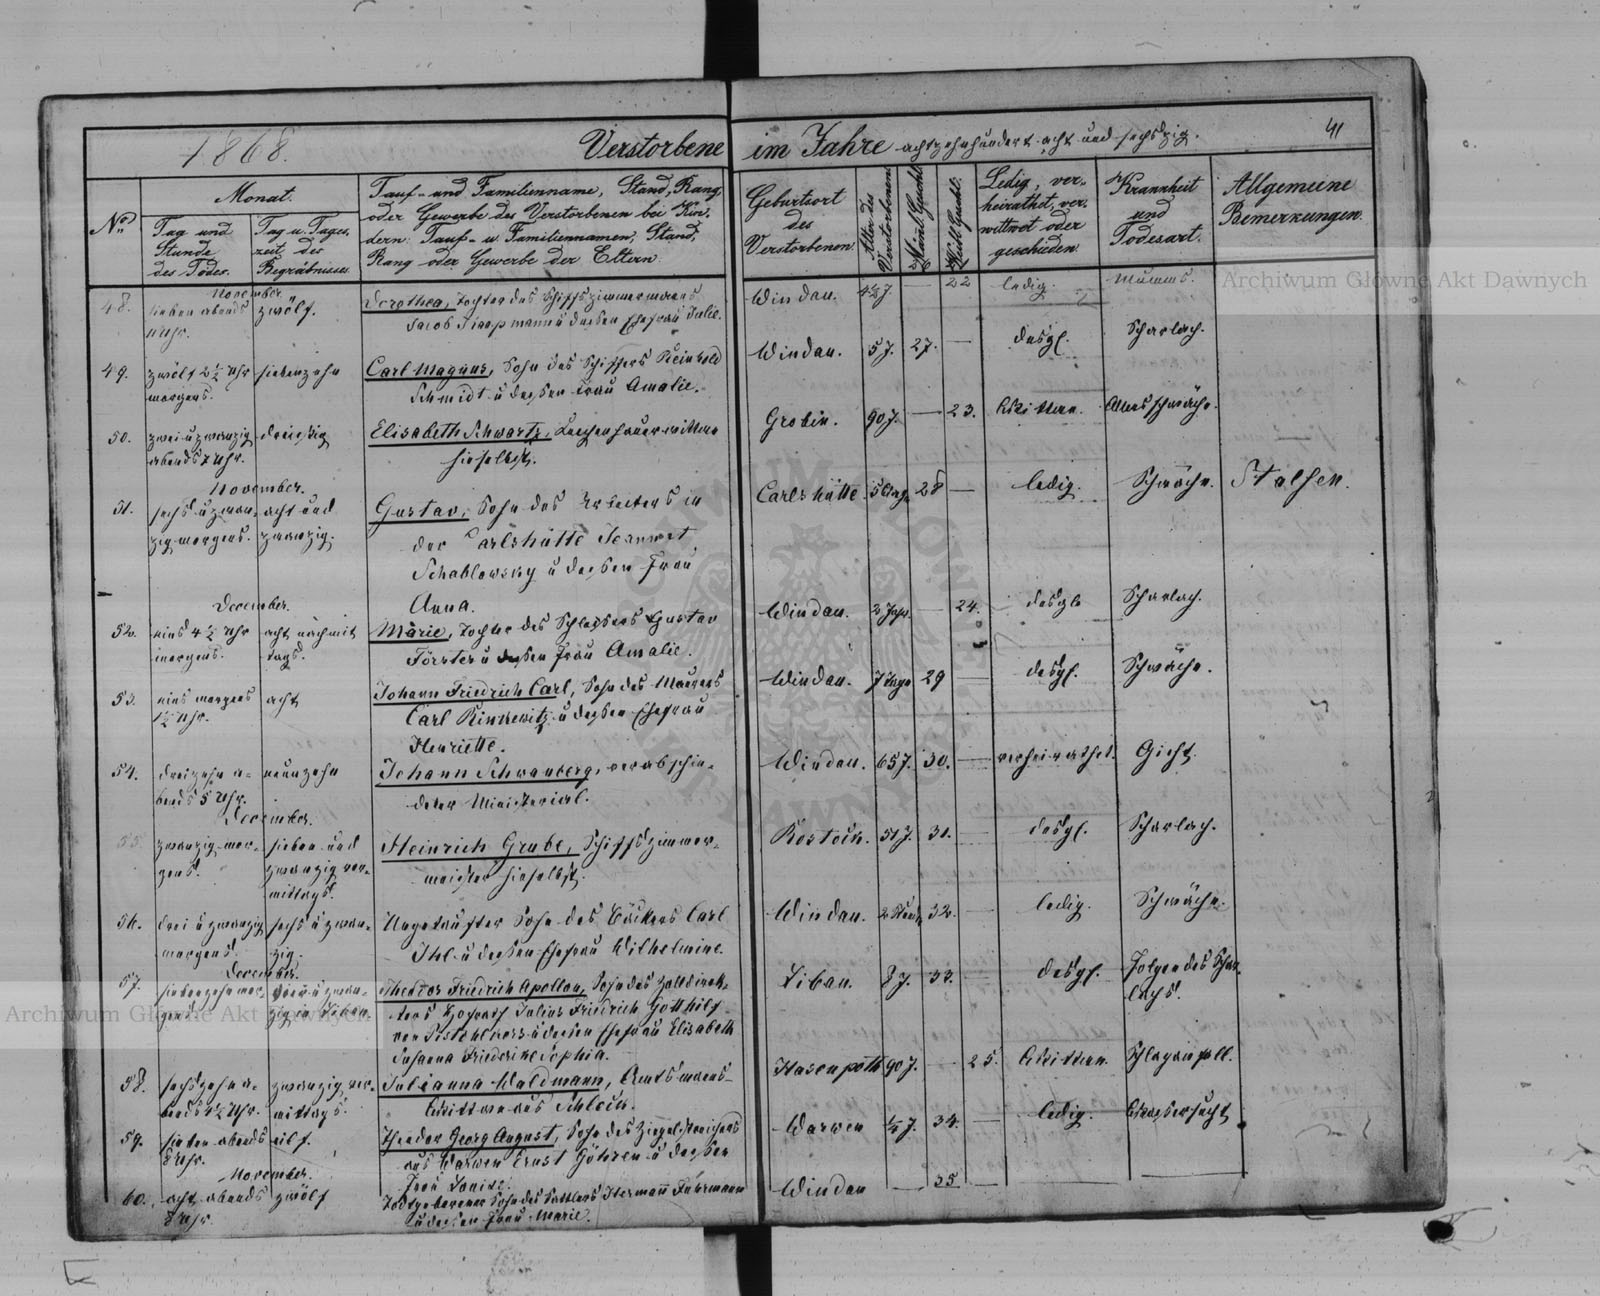 1868.
Verstorbene im Jahre achtzehnhundert acht und sechszig.
41
No.
Monat.
Tag und Stunde des Todes.
Tag u. Tageszeit des Begräbnisses
Tauf- und Familienname, Stand, Rang
oder Gewerbe des Verstorbenen bei Kin-
dern: Tauf- u. Familiennamen, Stand,
Rang oder Gewerbe der Eltern.
Geburtsort des Verstorbenen.
Alter des Verstorbenen
Männl. Geschl.
Weibl. Geschl.
Ledig, ver-
heirathet, ver-
wittwet oder
geschieden
Krankheit
und
Todesart.
Allgemeine
Bemerkungen.
November
48. sieben abends zwölf. Dorothea, Tochter des Schiffszimmermanns Windau. 22 ledig.
Uhr. Jacob u dessen Ehefrau Julie.
49. zwölf 2½ Uhr siebenzehn Carl Magnus, Sohn des Schiffers Reinhold Windau. 5 J. 27. — desgl. Scharlach.
morgens. Schmidt u dessen Frau Amalie.
50. zwei u zwanzig dreissig Elisabeth Schwartz, wittwe Grobin. 90 J. — 23. Wittwe. Altersschwäche.
abends 7 Uhr. hieselbst.
November.
51. sechs u zwan- acht und Gustav, Sohn des Arbeiters in Carlshütte 5 Tage 28 — ledig. Schwäche. Stalsen.
zig morgens. zwanzig. der Carlshütte Jeannot
Schablowsky u dessen Frau
Anna.
December.
52. eins 4½ Uhr acht nachmit Marie, Tochter des Schlossers Gustav Windau. 2 Jahr — 24. desgl. Scharlach.
morgens. tags. Förster u dessen Frau Amalie.
53. eins morgens acht Johann Friedrich Carl, Sohn des Maurers Windau. 7 Tage 29 — desgl. Schwäche.
1½ Uhr. Carl Rinkewitz u dessen Ehefrau
Henriette.
54. dreizehn a- neunzehn Johann Schwanberg, verabschie- Windau. 65 J. 30. — verheirathet. Gicht.
bends 5 Uhr. deter Ministerial.
December.
55. zwanzig mor- sieben und Heinrich Grube, Schiffszimmer- Rostock. 51 J. 31. — desgl. Scharlach.
gens. zwanzig vor- meister hieselbst.
mittags.
56. drei u zwanzig sechs u zwan- Ungetaufter Sohn des Bäckers Carl Windau. 2 Stund 32. — ledig. Schwäche.
morgens. zig. Ihl u dessen Ehefrau Wilhelmine.
December.
57. siebenzehn mor- vier u zwan- Theodor Friedrich Apollon, Sohn des Zolldirek- Libau. 8 J. 33. — desgl. Folgen des Schar-
gens zig u sieben tors Hofrath Julius Friedrich Gotthilf lachs.
von u dessen Ehefrau Elisabeth
Susanna Friederike Sophia.
58. sechszehn a- zwanzig vor- Julianna Waldmann, Amtmanns- Hasenpoth 90 J. — 25. Wittwe. Schlaganfall.
bends 4½ Uhr. mittags. Wittwe aus Schleck.
59. sieben abends eilf. Theodor Georg August, Sohn des Ziegelstreichers Warwen ½ J. 34. — ledig. Wassersucht
8 Uhr. aus Warwen Ernst Göhren u dessen
Frau Louise.
November.
60. acht abends zwölf Todtgeborener Sohn des Sattlers Hermann Fuhrmann Windau — 35. —
8 Uhr. u dessen Frau Marie.
Archiwum Główne Akt Dawnych
Archiwum Główne Akt Dawnych
ARCHIWUM GŁÓWNE AKT DAWNYCH